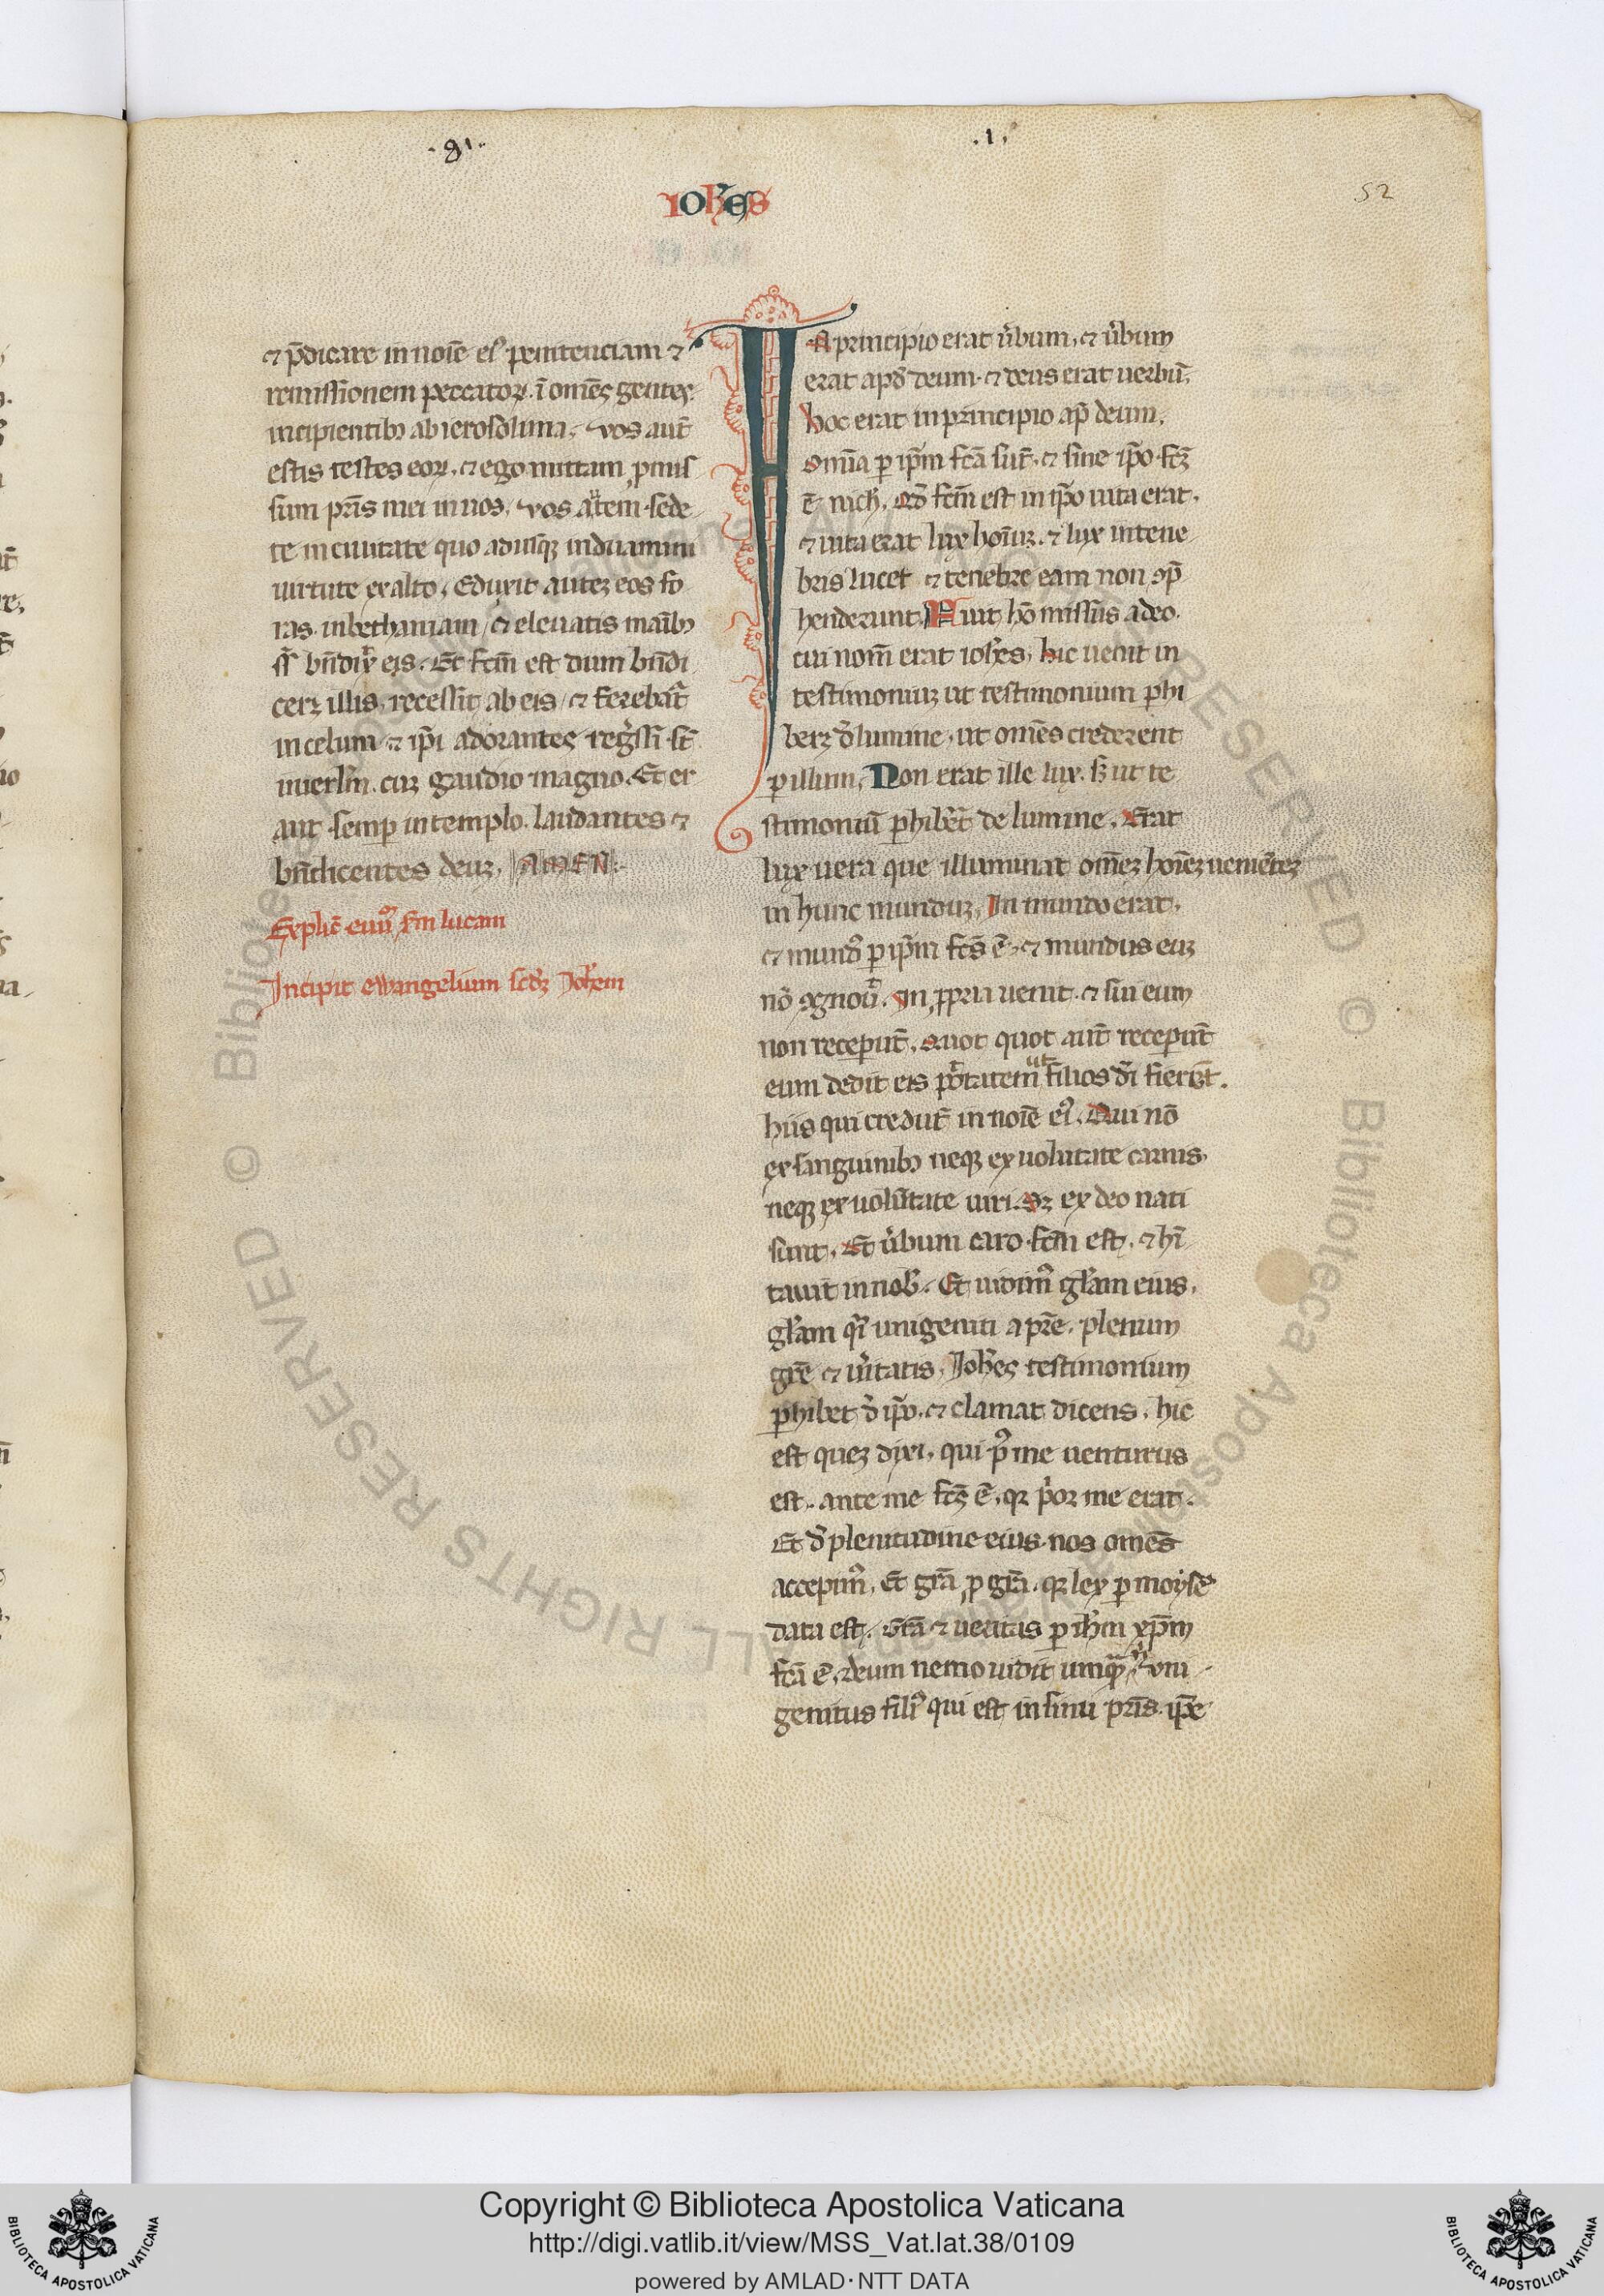 .91.
.1.
52
Ioh̅es
⁊ p̅dicare in noı̅e eiꝰ penitenciam ⁊
remissionem peccatoꝝ. ı̅ om̅es gentes.
incipientibꝫ ab ierosolima. vos aut̅
estis testes eoꝝ. ⁊ ego mittam ꝓmis
sum pr̅is mei in uos. vos autem sede
te in ciuitate quo adusqꝫ induamini
uirtute ex alto. Eduxit autez eos fo
ras in bethaniam / ⁊ eleuatis manibꝫ
suis bn̅dix̅ eis. Et fcm̅ est dum bn̅di
cerꝫ illis, recessit ab eis / ⁊ ferebat̅
in celum ⁊ ip̅i adorantes reg̅ssi st̅
in ierl̅m. cuꝫ gaudio magno. Et er
ant semꝑ in templo. laudantes ⁊
bn̅dicentes deuꝫ, AMEN.
Explic̅ euu̅ẜm lucam
Incipit ewangelium scd̅ꝫ Joh̅em
IN principio erat u̅bum. ⁊ u̅bum
erat apd̅ deum. ⁊ deus erat uerbu̅.
hoc erat in principio ap̅ deum.
Omı̅a ꝑ ip̅m fca̅ su̅t. ⁊ sine ip̅o fcꝫ
e̅ nich̅. Qd̅ fcm̅ est in ip̅o uita erat.
⁊ uita erat lux hoı̅uꝫ. ⁊ lux in tene
bris lucet ⁊ tenebre eam non ꝯp̅
henderunt. Fuit ho̅ missus a deo.
cui nom̅ erat ioh̅es. hic uenit in
testimoniuꝫ ut testimonium ꝑhi
berꝫ d̅ lumine. ut om̅es crederent
ꝑ illum. Non erat ille lux. sꝫ ut te
stimoniu̅ ꝑhib̅et de lumine. Erat
lux uera que illuminat om̅eꝫ hoı̅eꝫ uenie̅teꝫ
in hunc munduꝫ. In mundo erat.
⁊ mundꝰ ꝑ ip̅m fcs̅ e̅. ⁊ mundus euꝫ
no̅ ꝯgnou̅. In ꝓpria uenit. ⁊ sui eum
non receperu̅t. Quot quot aut̅ receperu̅t
eum dedit eis p̅tatem ut filios d̅i fierent.
hiis qui credu̅t in noı̅e eiꝰ. Qui no̅
ex sanguinibꝫ neqꝫ ex uolu̅tate carnis.
neqꝫ ex uolu̅tate uiri. Sꝫ ex deo nati
sunt. Et u̅bum caro fcm̅ est. ⁊ hı̅
tauit in nob̅. Et uidimꝰ gl̅am eius.
gl̅am q̅i unigeniti a pr̅e. plenum
gr̅e ⁊ u̅itatis. Joh̅es testimonium
ꝑhibet d̅ ip̅o. ⁊ clamat dicens. hic
est queꝫ dixi. qui pꝰ me uenturus
est. ante me fcs̅ e̅. qꝛ p̅or me erat.
Et d̅ plenitudine eius nos om̅es
accepimꝰ. Et gr̅a ꝓ gr̅a. qꝛ lex ꝑ moyse̅
data est. Gr̅a ⁊ ueritas ꝑ ih̅m xp̅m
fca̅ e̅. deum nemo uidit umqua̅ uni
genitus filiꝰ qui est in sinu pr̅is. ip̅e
Copyright © Biblioteca Apostolica Vaticana
http://digi.vatlib.it/view/MSS_Vat.lat.38/0109
powered by AMLAD·NTT DATA
BIBLIOTECA APOSTOLICA VATICANA
BIBLIOTECA APOSTOLICA VATICANA